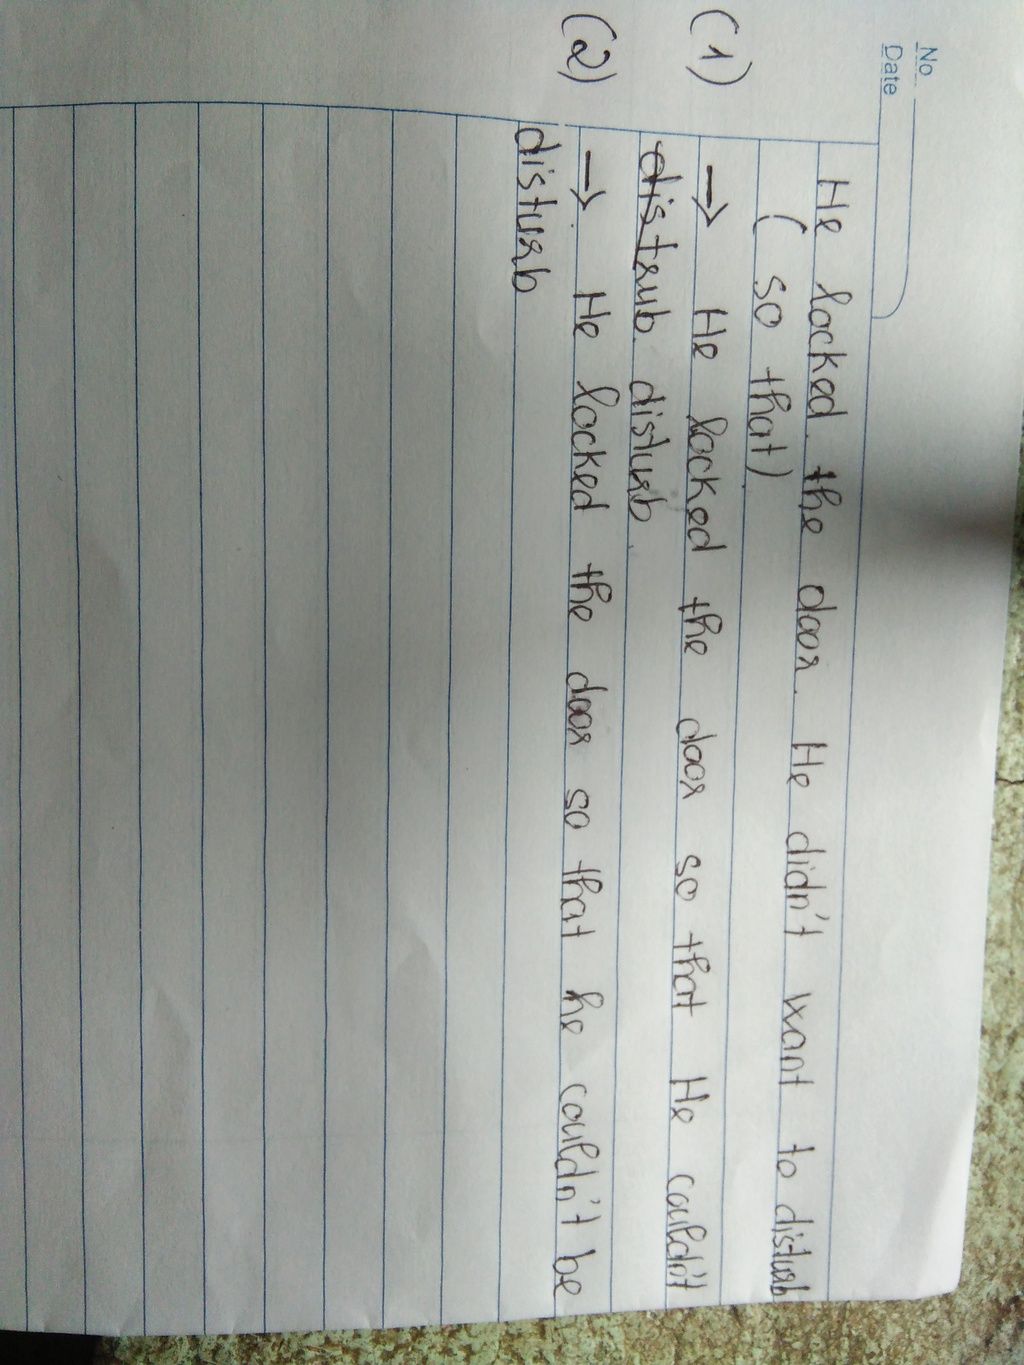 No
Date
He locked the door. He didn't want to disturb
(so that)
(1) → He locked the door so that He couldn't
distrub disturb.
(2) → He locked the door so that he couldn't be
disturb